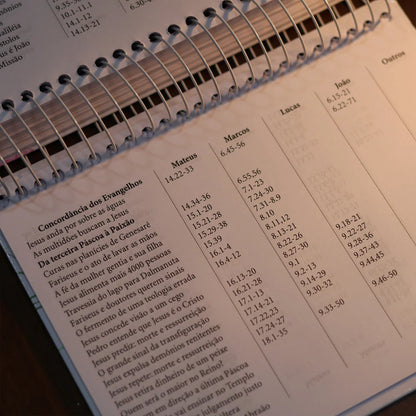 alléia
stolos
us e João
Missão
10.1-11.1
14.1-12
14.13-21
Concordância dos Evangelhos
Jesus anda por sobre as águas
As multidões buscam a Jesus
Da terceira Páscoa à Paixão
Curas nas planícies de Genesaré
Fariseus e o ato de lavar as mãos
A fé da mulher gentia e sua filha
Jesus alimenta mais 4000 pessoas
Travessia do lago para Dalmanuta
Fariseus e doutores querem sinais
O fermento de uma teologia errada
Jesus concede visão a um cego
Pedro entende que Jesus é o Cristo
Jesus prediz: morte e ressurreição
O grande sinal da transfiguração
Jesus expulsa demônios renitentes
Jesus repete: morte e ressurreição
Jesus retira dinheiro de um peixe
Quem será o maior no Reino?
em direção a última Páscoa
vai ensinar no Templo
julgamento justo
Mateus
14.22-33
14.34-36
15.1-20
15.21-28
15.29-38
15.39
16.1-4
16.4-12
16.13-20
16.21-28
17.1-13
17.14-21
17.22,23
17.24-27
18.1-35
Marcos
6.45-56
6.55,56
7.1-23
7.24-30
7.31-8.9
8.10
8.11,12
8.13-21
8.22-26
8.27-30
9.1
9.2-13
9.14-29
9.30-32
9.33-50
Lucas
9.18-21
9.22-27
9.28-36
9.37-43
9.44,45
9.46-50
João
6.15-21
6.22-71
Outros